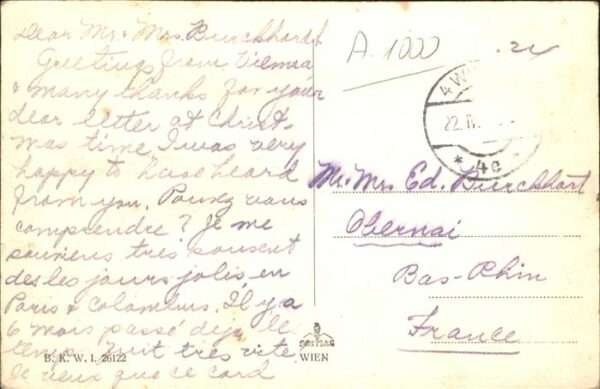 Dear Mr. & Mrs. Burckhardt
Greetings from Vienna
& many thanks for your
dear letter at Christ-
mas time. I was very
happy to have heard
from you. Pouvez vous
comprendre? Je me
souviens très souvent
des les jours jolis en
Paris & Colombus. Il y a
6 mois passé deja le
temps. Nuit très vite
Je veux que ce card
A. 1000
.24
4 W
22. II.
* 4c
Mr. Mrs. Ed. Burckhart
Obernai
Bas-Rhin
France
B. K. W. I. 26122
WIEN